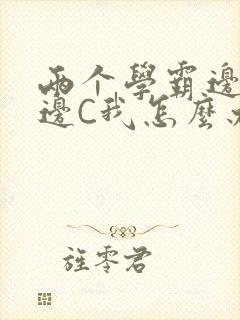 两个學霸邊
邊C我怎麼
旌零君